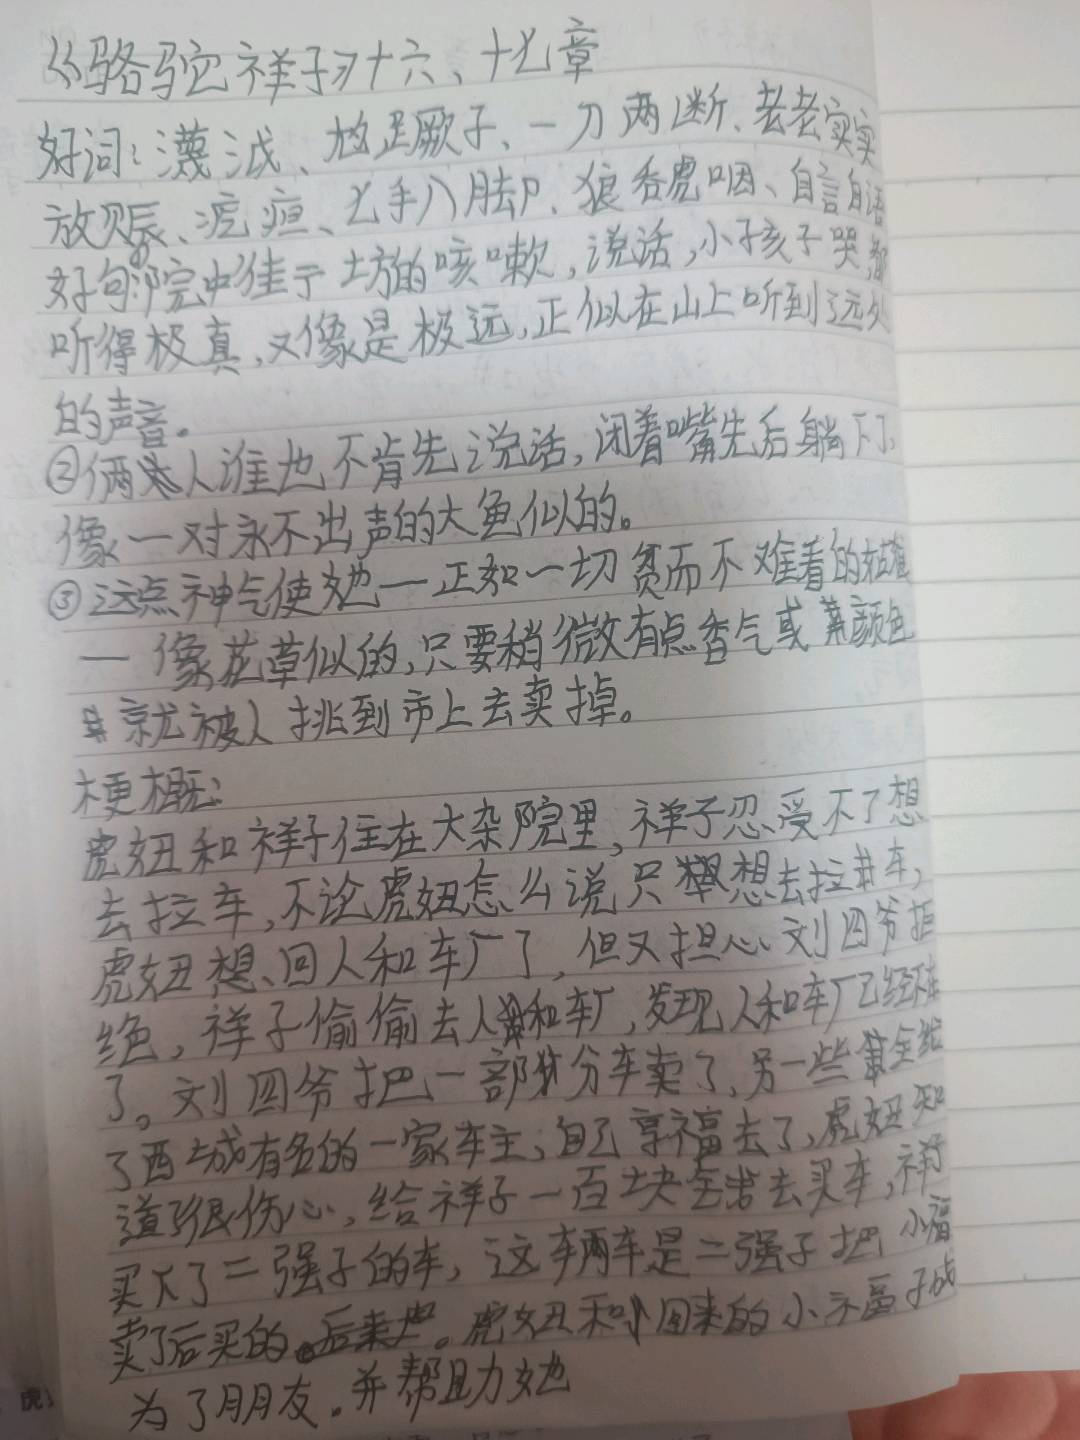 《骆驼祥子》十六、十七章
好词：蔑、尥蹶子、一刀两断、老老实实
放赈、疙疸、七手八脚、狼吞虎咽、自言自语
好句：①院中住于方的咳嗽，说话，小孩子哭，都
听得极真，又像是极远，正似在山上听到远处
的声音。
②俩人谁也不肯先说话，闭着嘴先后躺下了，
像一对永不出声的大鱼似的。
③这点神气使她—正如一切贫而不难看的姑娘
— 像花草似的，只要稍微有点香气或颜色
就被人挑到市上去卖掉。
梗概：
虎妞和祥子住在大杂院里，祥子忍受不了想
去拉车，不论虎妞怎么说只想去拉车，
虎妞想、回人和车厂了，但又担心刘四爷拒
绝，祥子偷偷去人和车厂，发现人和车厂已经不在
了。刘四爷把一部分车卖了，另一些全给
了西城有名的一家车主，自己享福去了，虎妞知
道了很伤心，给祥子一百块去买车，祥子
买下了二强子的车，这车两车是二强子把小福
卖了后买的。虎妞和回来的小福子成
为了朋友。并帮助她